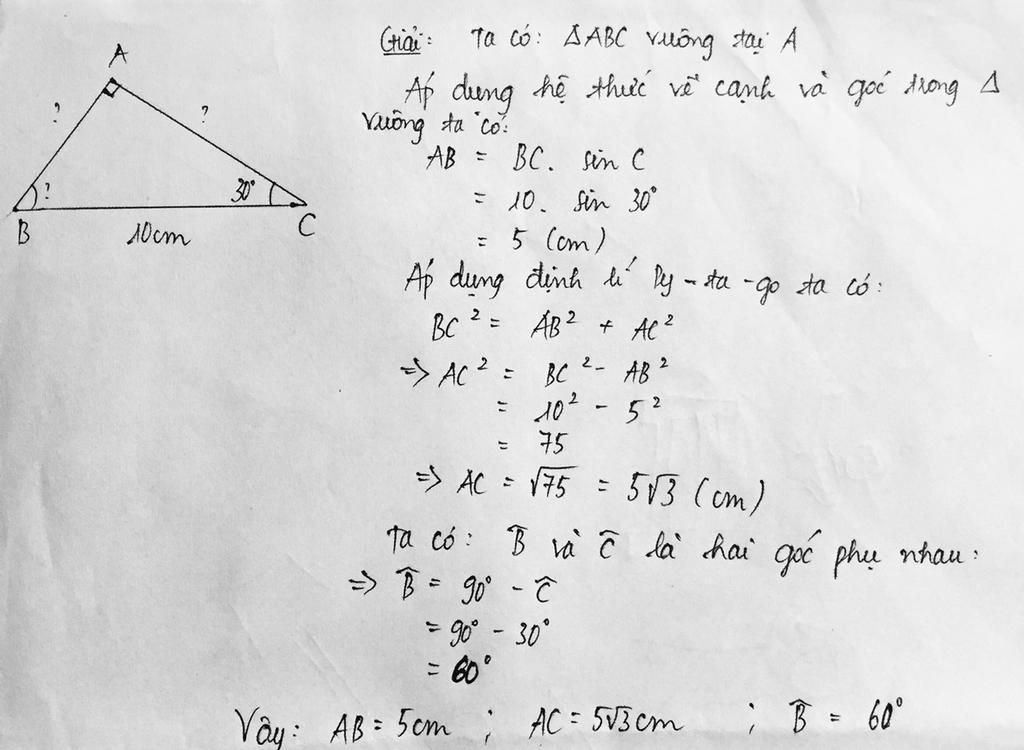 A
?
?
?
30°
B
10cm
C
Giải: Ta có: ΔABC vuông tại A
Áp dụng hệ thức về cạnh và góc trong Δ
vuông ta có:
AB = BC. sin C
= 10. sin 30°
= 5 (cm)
Áp dụng định lí Py-ta-go ta có:
BC² = AB² + AC²
=> AC² = BC² - AB²
= 10² - 5²
= 75
=> AC = √75 = 5√3 (cm)
Ta có: B̂ và Ĉ là hai góc phụ nhau:
=> B̂ = 90° - Ĉ
= 90° - 30°
= 60°
Vậy: AB = 5cm ; AC = 5√3cm ; B̂ = 60°